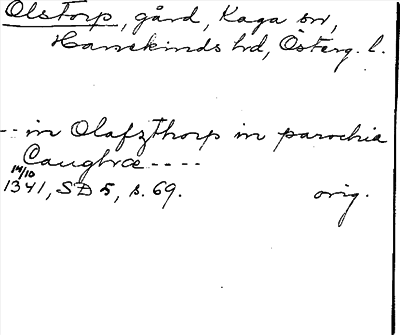 Olstorp, gård, Kaga sn,
Hanekinds hd, Österg. l.
-- in Olafzthorp in parochia
Caughræ ----
14/10
1341, SD 5, s. 69. orig.